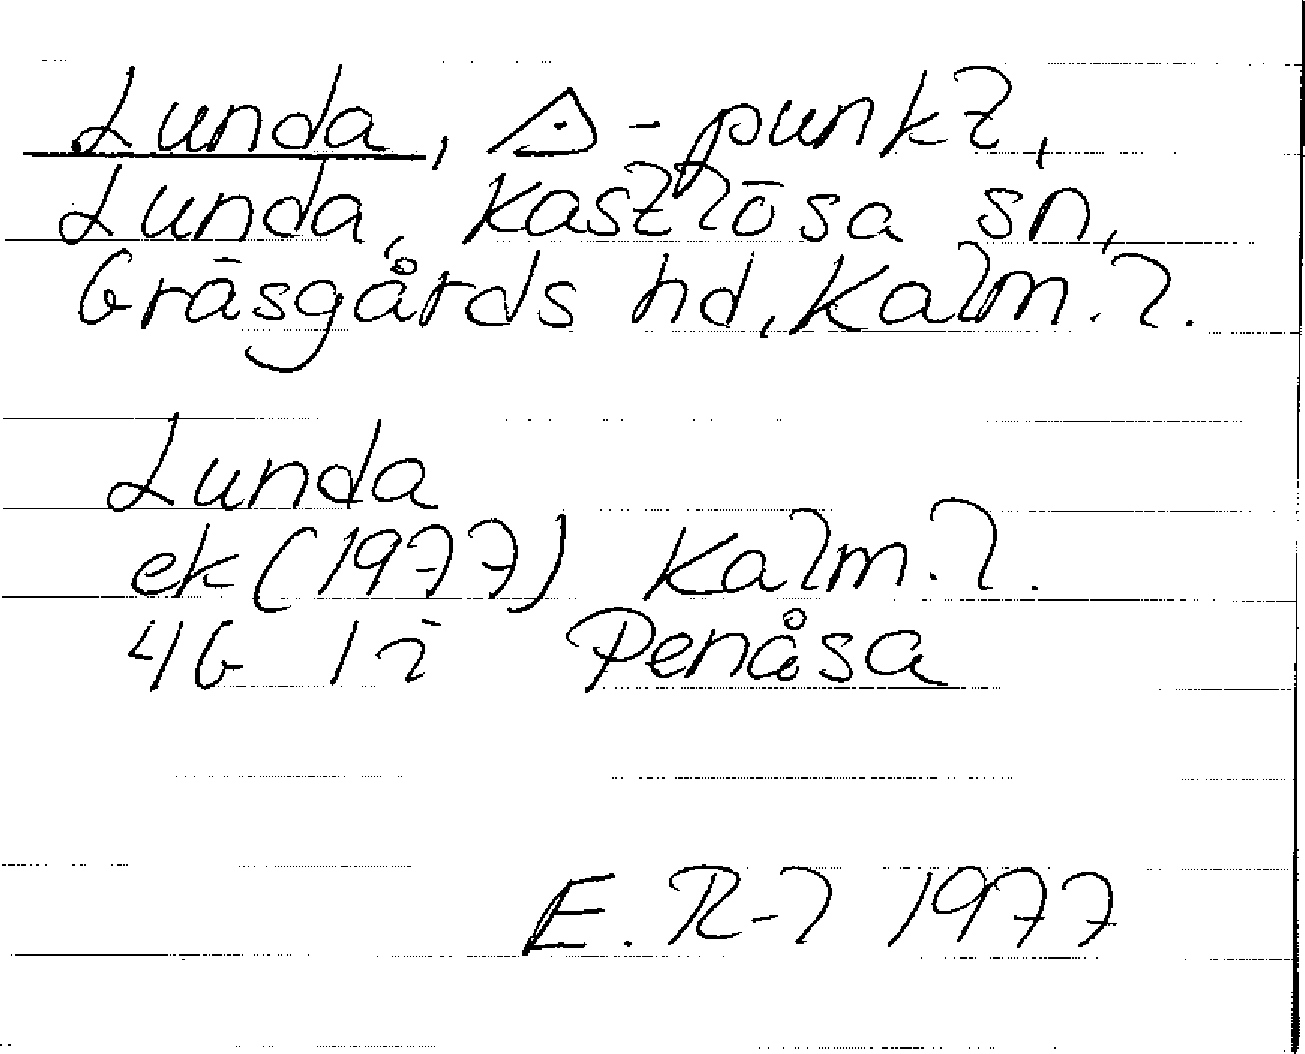 Lunda, △-punkt,
Lunda, Kastlösa sn,
Gräsgårds hd, Kalm. l.
Lunda
ek (1977) Kalm. l.
4G 1 i Penåsa
E. R-l 1977